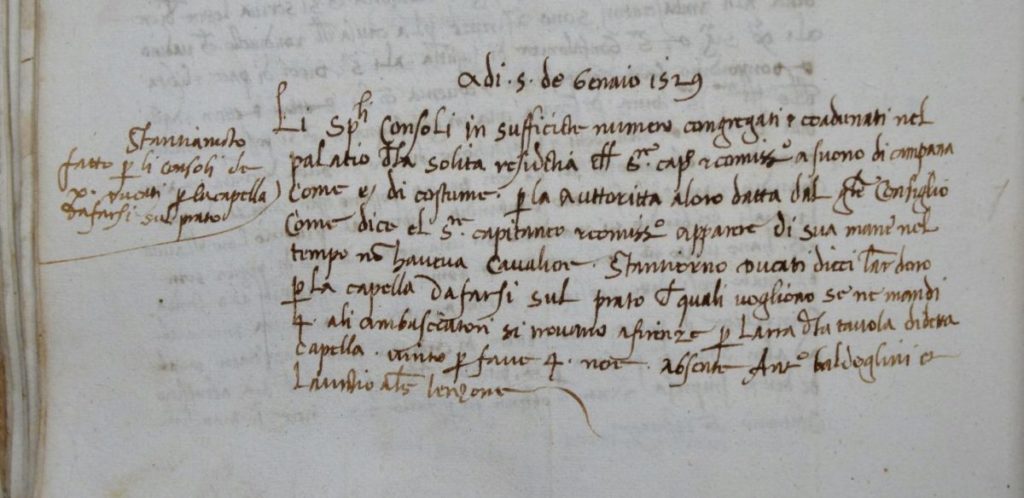 Adi .5. de Genaio 1529
Stantiamẽto
fatto p li consoli de
X. ducati p la capella
dafarsi sul prato
Li Sp^li Consoli in sufficiẽte numero congregati & coadunati nel
palatio dla solita residẽtia S.^re cap.^o & comiss.^o a suono di campana
Come e di costume . p la auttoritta aloro datta dal Consiglio
Come dice el S.^re capitaneo & comiss.^o appare di sua mane nel
tempo nõ haveva Cavaliere . Stantiorno Ducati dieci doro
p la capella dafarsi sul prato quali vogliono se ne mandi
4. ali imbasciatori si trovano a firenze p larra dla tavola di detta
capella . vinto p fave 4. nere . absente Ant.^o baldeglini et